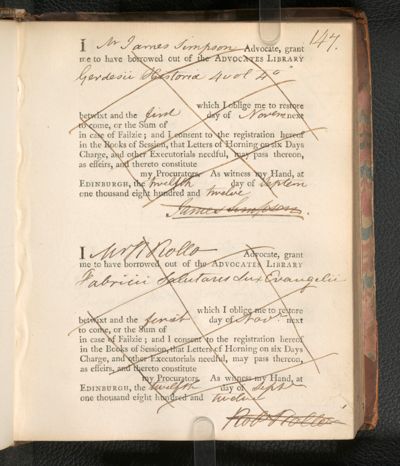 147.
I Mr James Simpson Advocate, grant
me to have borrowed out of the ADVOCATES LIBRARY
Gerdesii Historia 4 vol 4°
which I oblige me to restore
betwixt and the first day of Novem next
to come, or the Sum of
in case of Failzie; and I consent to the registration hereof
in the Books of Session, that Letters of Horning on six Days
Charge, and other Executorials needful, may pass thereon,
as effeirs, and thereto constitute
my Procurators. As witness my Hand, at
EDINBURGH, the twelfth day of Septem
one thousand eight hundred and twelve
James Simpson.
I Mr R Rollo Advocate, grant
me to have borrowed out of the ADVOCATES LIBRARY
Fabricii Salutaris Lux Evangelii
which I oblige me to restore
betwixt and the first day of Nov. next
to come, or the Sum of
in case of Failzie; and I consent to the registration hereof
in the Books of Session, that Letters of Horning on six Days
Charge, and other Executorials needful, may pass thereon,
as effeirs, and thereto constitute
my Procurators. As witness my Hand, at
EDINBURGH, the twelfth day of Sept
one thousand eight hundred and twelve
Robt Rollo